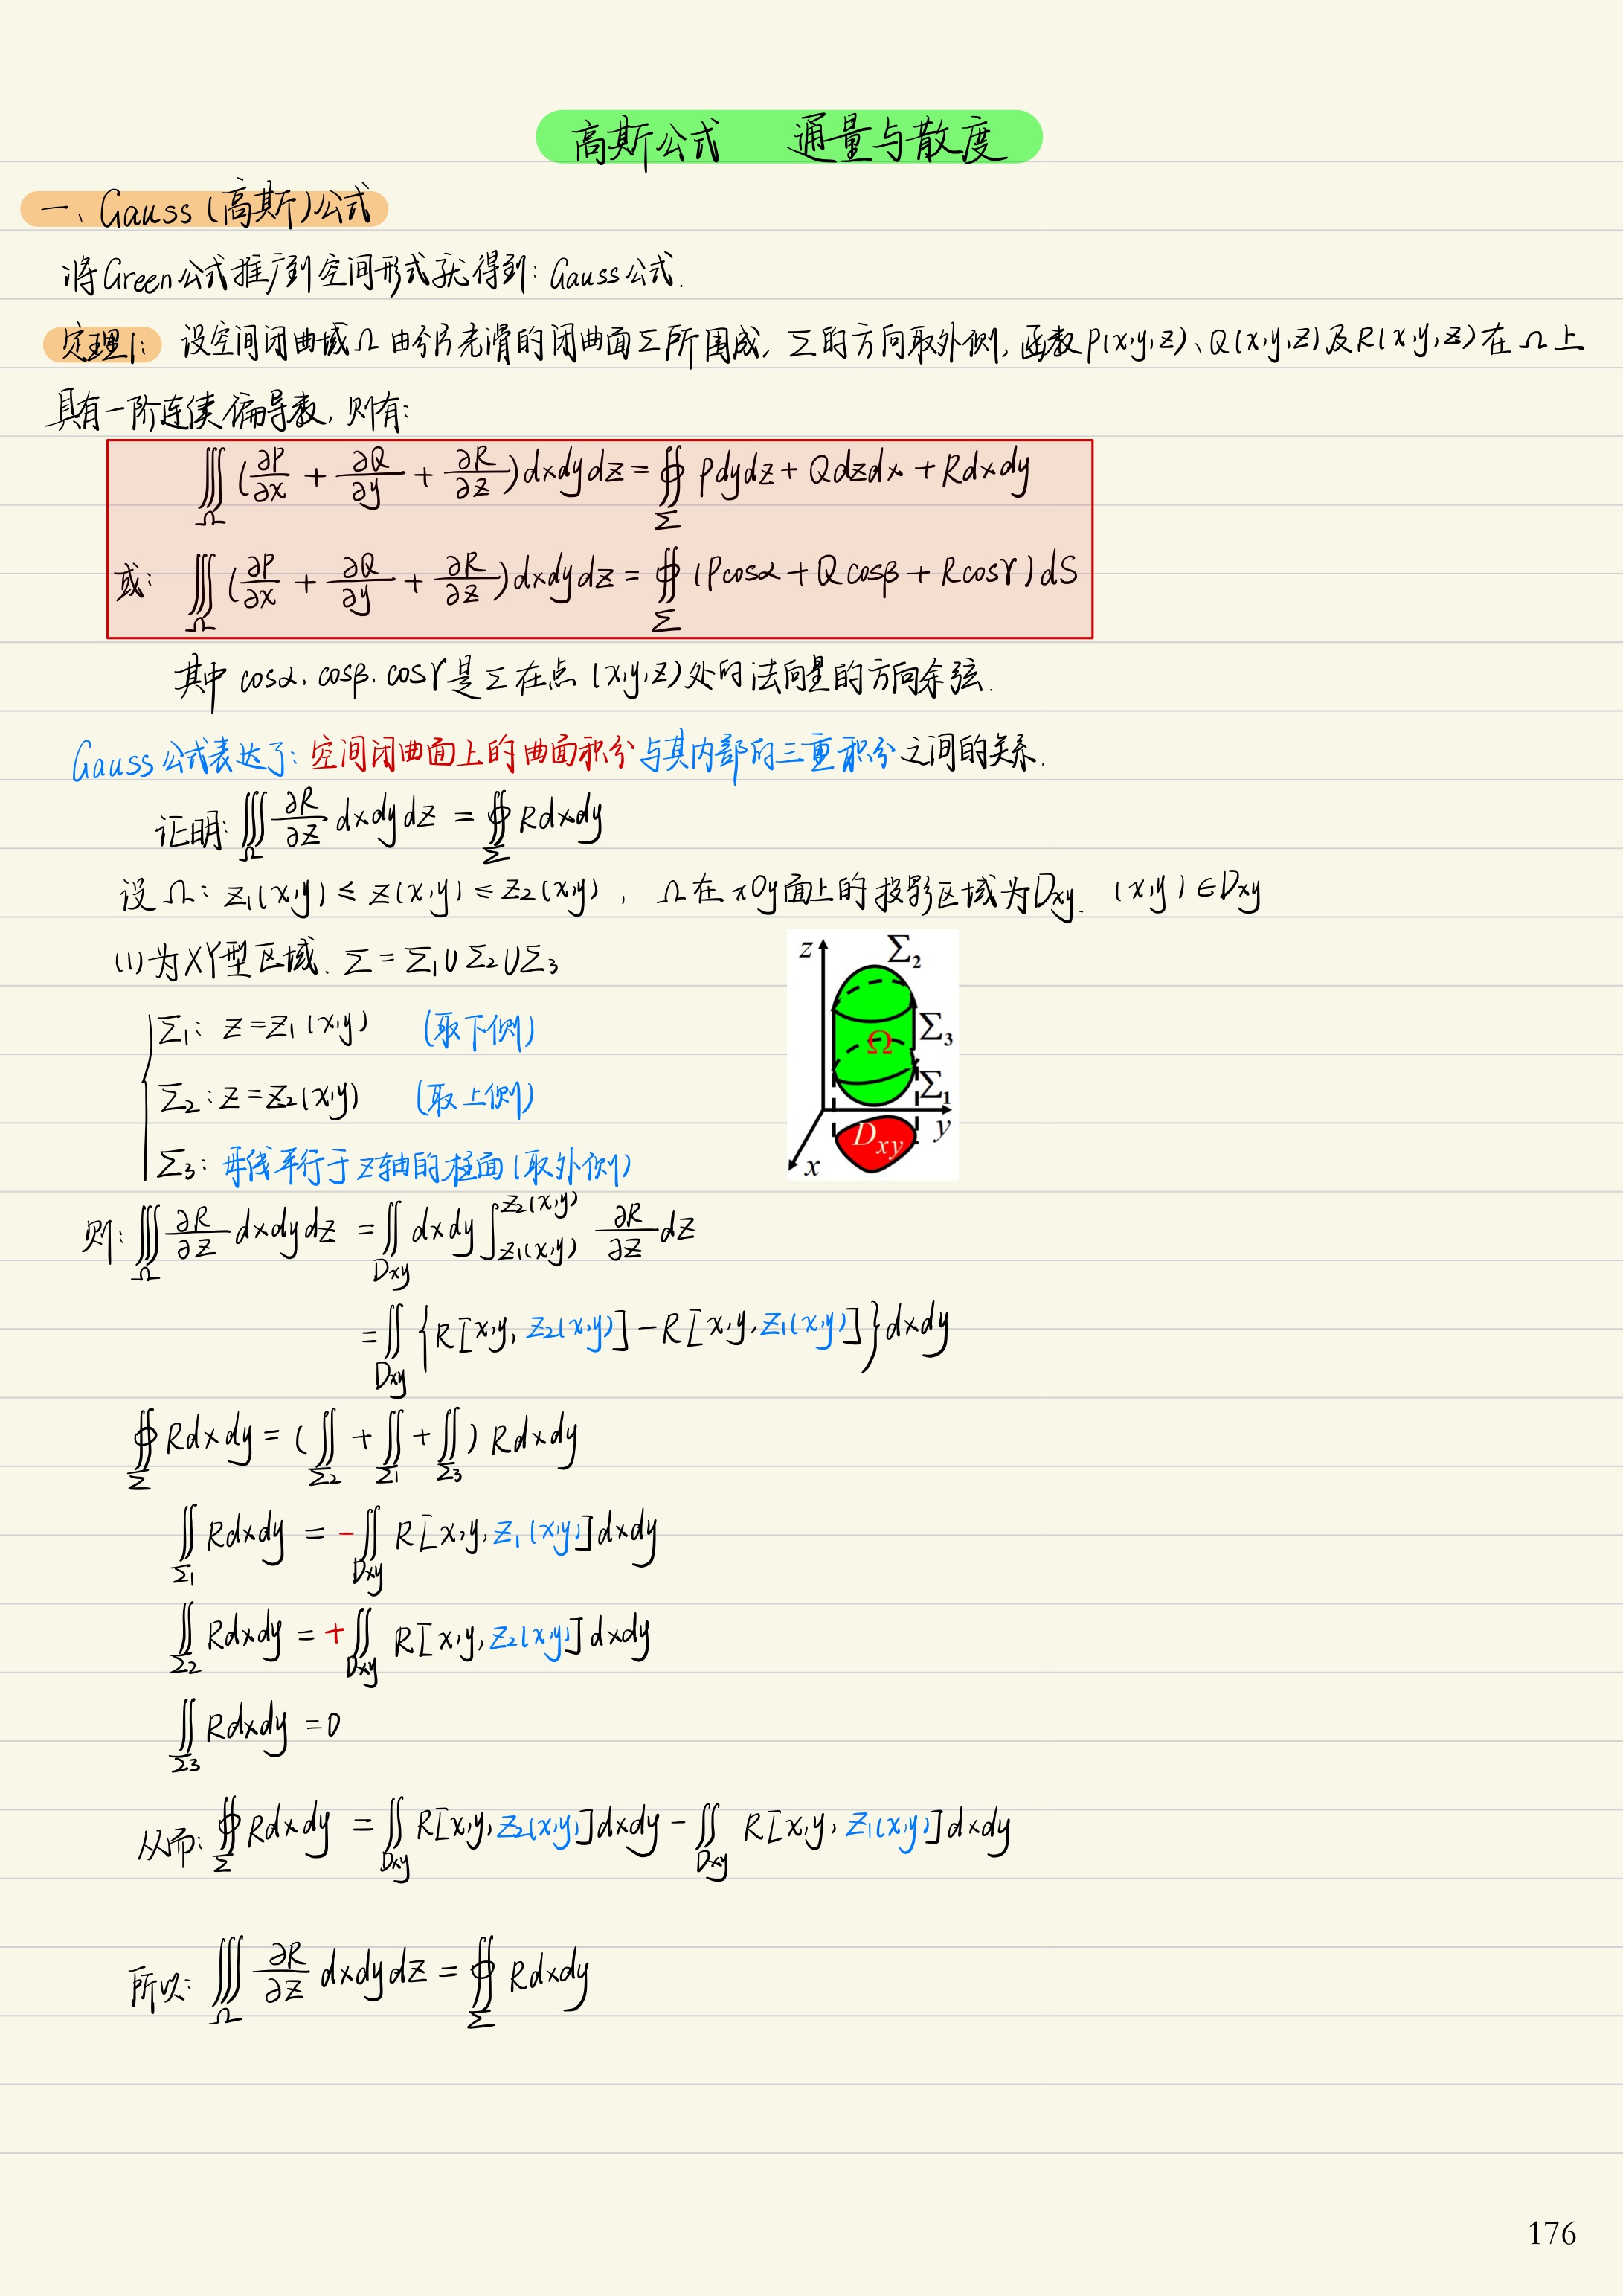 高斯公式 通量与散度
一、Gauss（高斯）公式
将Green公式推广到空间形式就得到：Gauss公式.
定理1：设空间闭曲域Ω由分片光滑的闭曲面Σ所围成, Σ的方向取外侧, 函数P(x,y,z)、Q(x,y,z)及R(x,y,z)在Ω上
具有一阶连续偏导数, 则有：
∭_Ω (∂P/∂x + ∂Q/∂y + ∂R/∂z)dxdydz = ∯_Σ Pdydz + Qdzdx + Rdxdy
或：∭_Ω (∂P/∂x + ∂Q/∂y + ∂R/∂z)dxdydz = ∯_Σ (Pcosα + Qcosβ + Rcosγ)dS
其中 cosα, cosβ, cosγ是Σ在点(x,y,z)处的法向量的方向余弦.
Gauss公式表达了：空间闭曲面上的曲面积分与其内部的三重积分之间的关系.
证明：∭_Ω ∂R/∂z dxdydz = ∯_Σ Rdxdy
设Ω：z₁(x,y) ≤ z(x,y) ≤ z₂(x,y), Ω在xOy面上的投影区域为Dxy. (x,y)∈Dxy
(1)为XY型区域. Σ=Σ₁∪Σ₂∪Σ₃
Σ₁：z=z₁(x,y) (取下侧)
Σ₂：z=z₂(x,y) (取上侧)
Σ₃：母线平行于z轴的柱面(取外侧)
z Σ₂
Ω Σ₃
Σ₁
D_xy y
x
则：∭_Ω ∂R/∂z dxdydz = ∬_Dxy dxdy ∫_{z₁(x,y)}^{z₂(x,y)} ∂R/∂z dz
= ∬_Dxy {R[x,y,z₂(x,y)] − R[x,y,z₁(x,y)]}dxdy
∯_Σ Rdxdy = (∬_Σ₂ + ∬_Σ₁ + ∬_Σ₃) Rdxdy
∬_Σ₁ Rdxdy = −∬_Dxy R[x,y,z₁(x,y)]dxdy
∬_Σ₂ Rdxdy = +∬_Dxy R[x,y,z₂(x,y)]dxdy
∬_Σ₃ Rdxdy = 0
从而：∯_Σ Rdxdy = ∬_Dxy R[x,y,z₂(x,y)]dxdy − ∬_Dxy R[x,y,z₁(x,y)]dxdy
所以：∭_Ω ∂R/∂z dxdydz = ∯_Σ Rdxdy
176